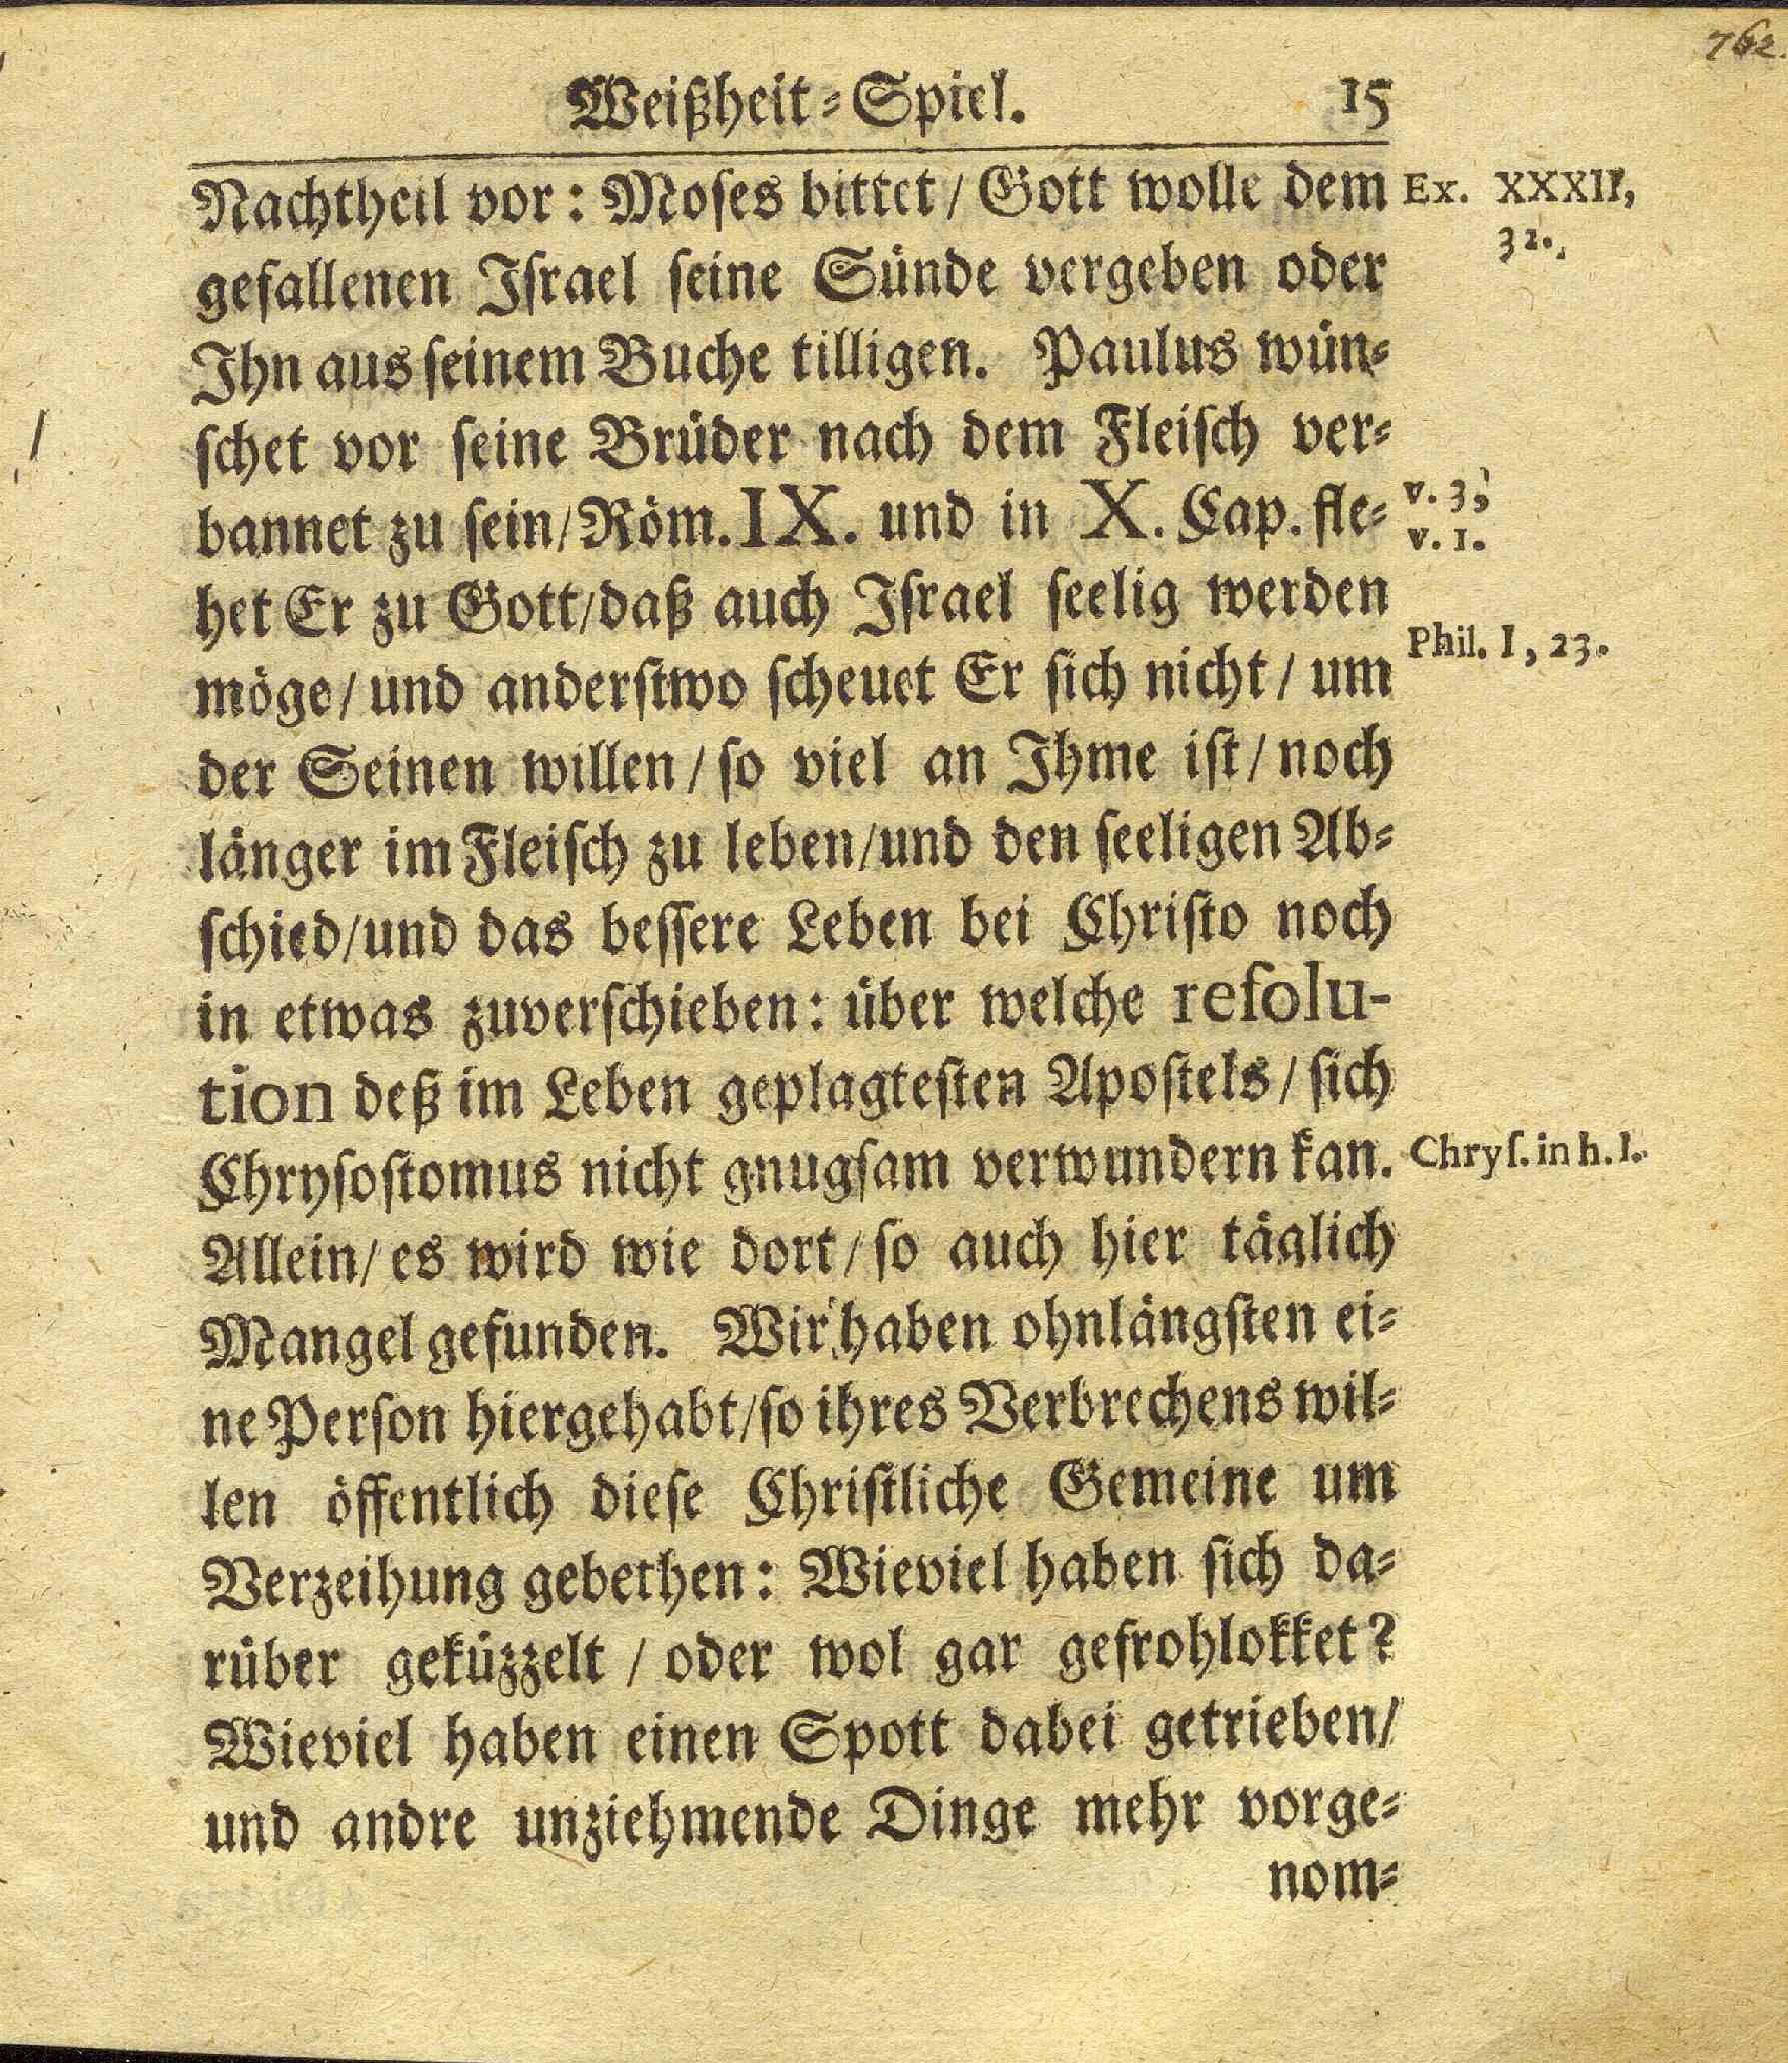 762.
Weißheit-Spiel. 15
Nachtheil vor: Moses bittet/ Gott wolle dem
Ex. XXXII,
32.
gefallenen Israel seine Sünde vergeben oder
Ihn aus seinem Buche tilligen. Paulus wün-
schet vor seine Brüder nach dem Fleisch ver-
bannet zu sein/ Röm. IX. und in X. Cap. fle-
v. 3,
v. 1.
het Er zu Gott/ daß auch Israel seelig werden
möge/ und anderstwo scheuet Er sich nicht/ um
Phil. I, 23.
der Seinen willen/ so viel an Ihme ist/ noch
länger im Fleisch zu leben/ und den seeligen Ab-
schied/ und das bessere Leben bei Christo noch
in etwas zuverschieben: über welche resolu-
tion deß im Leben geplagtesten Apostels/ sich
Chrysostomus nicht gnugsam verwundern kan.
Chrys. in h. l.
Allein/ es wird wie dort/ so auch hier täglich
Mangel gefunden. Wir haben ohnlängsten ei-
ne Person hiergehabt/ so ihres Verbrechens wil-
len öffentlich diese Christliche Gemeine um
Verzeihung gebethen: Wieviel haben sich da-
rüber geküzzelt/ oder wol gar gefrohlokket?
Wieviel haben einen Spott dabei getrieben/
und andre unziehmende Dinge mehr vorge-
nom-